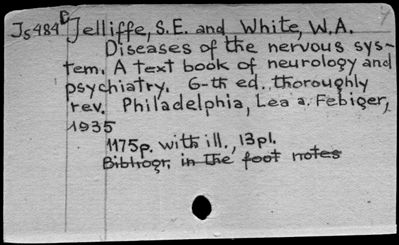 Js484D Jelliffe, S.E. and White, W.A.
Diseases of the nervous sys-
tem. A text book of neurology and
psychiatry. 6-th ed. thoroughly
rev. Philadelphia, Lea a. Febiger,
1935
1175p. with ill., 13pl.
Bibliogr. in the foot notes